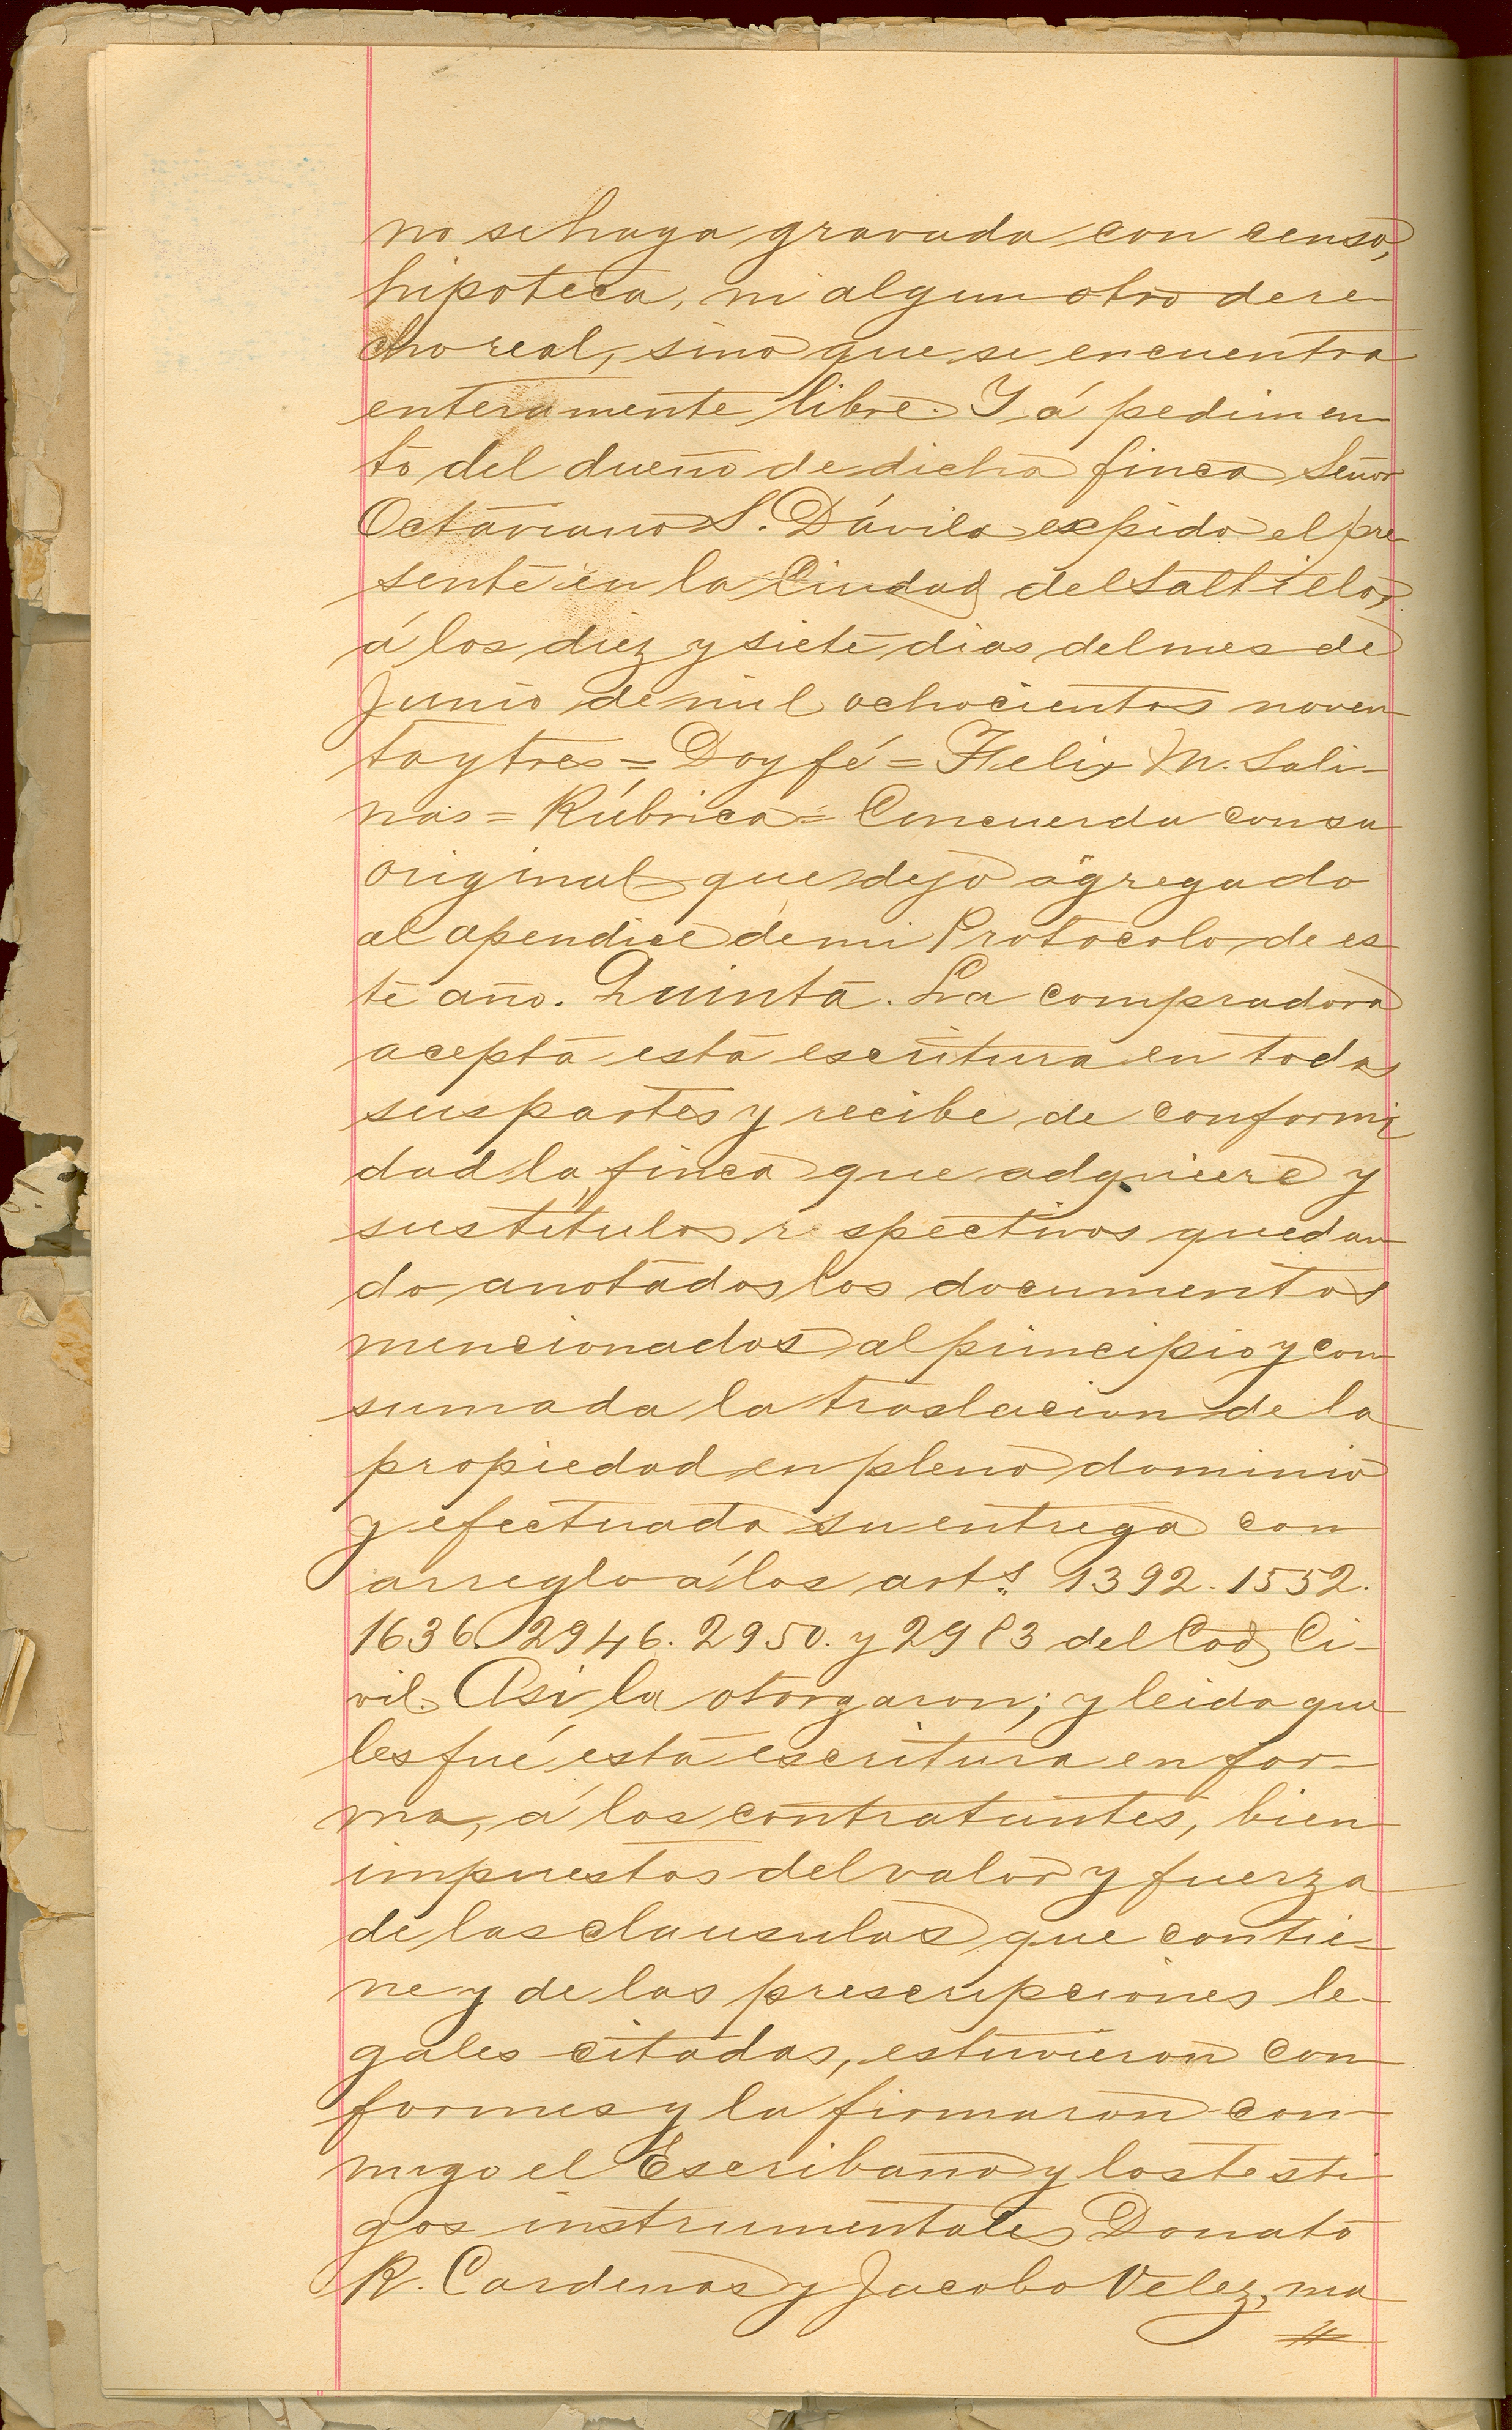 no se haya gravada con censo,
hipoteca, ni algun otro dere-
cho real, sino que se encuentra
enteramente libre. Y á pedimen-
to del dueño de dicha finca Señor
Octaviano S. Dávila expido el pre-
sente en la Ciudad del Saltillo,
á los diez y siete dias del mes de
Junio de mil ochocientos noven-
ta y tres = Doy fé = Felix M. Sali-
nas = Rúbrica = Concuerda con su
original que dejo agregado
al apendice de mi Protocolo de es-
te año. Quinta. La compradora
acepta esta escritura en todas
sus partes y recibe de conformi
dad la finca que adquiere y
sus titulos respectivos quedan-
do anotados los documentos
mencionados al principio y con-
sumada la traslacion de la
propiedad en pleno dominio
y efectuada su entrega con
arreglo á los arts. 1392. 1552.
1636. 2946. 2950. y 2983 del Cod. Ci-
vil. Asi la otorgaron; y leida que
les fué esta escritura en for-
ma, á los contratantes, bien
impuestos del valor y fuerza
de las clausulas que contie-
ne y de las prescripciones le-
gales citadas, estuvieron con-
formes y la firmaron con-
migo el Escribano y los testi-
gos instrumentales Donato
R. Cardenas y Jacobo Velez, ma